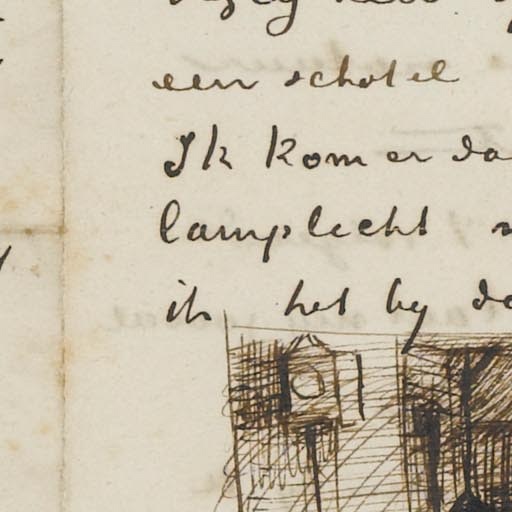 een schotel
Ik kom er da
lamplicht
ik het by da